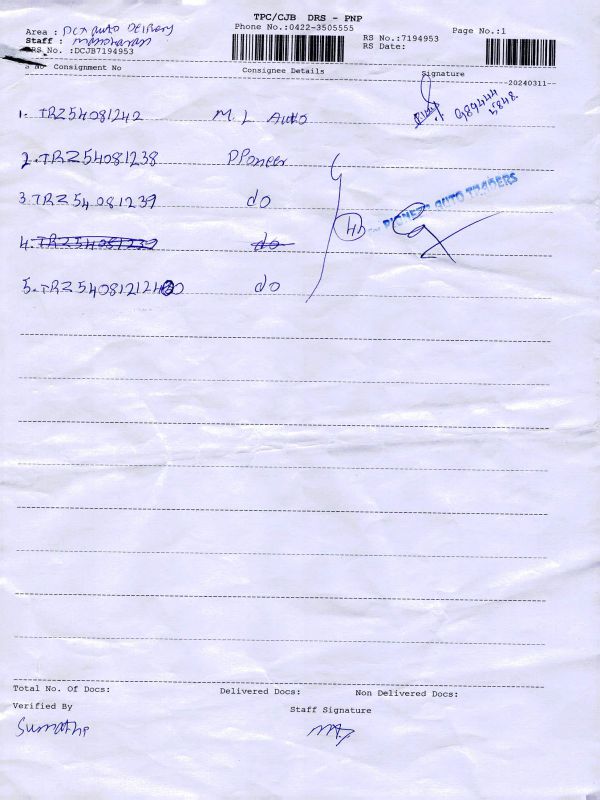 TPC/CJB DRS - PNP
Area : Auto Delivery
Phone No.:0422-3505555
Page No.:1
Staff : Manoharan
RS No.:7194953
DRS No. :DCJB7194953
RS Date:
S No Consignment No Consignee Details Signature
20240311
1. TRZ54081242 M. L Auto 989444
5848.
2. TRZ54081238 PPoneer
3. TRZ54081239 do
For PIONEER AUTO TRADERS
4. TRZ54081239 do
5. TRZ540812124 0 do
Total No. Of Docs: Delivered Docs: Non Delivered Docs:
Verified By Staff Signature
Sumathi